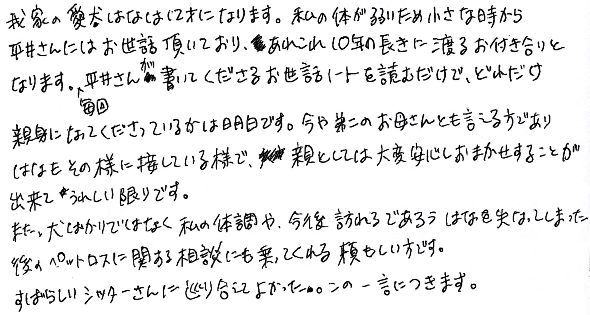 我家の愛犬はなはは12才になります。私の体が弱いため小さな時から
平井さんにはお世話頂いており、あれこれ10年の長きに渡るお付き合いと
なります。毎回平井さんが書いてくださるお世話ノートを読むだけで、どれだけ
親身になってくださっているかは明白です。今や第二のお母さんとも言える方であり
はなもその様に接している様で、親としては大変安心しおまかせすることが
出来てうれしい限りです。
また、犬ばかりではなく私の体調や、今後訪れるであろうはなを失なってしまった
後のペットロスに関する相談にも乗ってくれる頼もしい方です。
すばらしいシッターさんに巡り合えてよかった。この一言につきます。